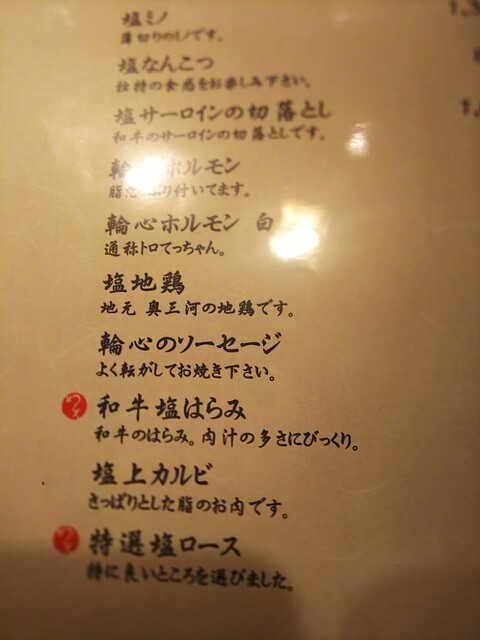 塩ミノ
薄切りのミノです。
塩なんこつ
独特の食感をお楽しみ下さい。
塩サーロインの切 落とし
和牛のサーロインの切 落としです。
輪 ホルモン
脂 り付いてます。
輪心ホルモン 白
通称トロてっちゃん。
塩地鶏
地元 奥三河の地鶏です。
輪心のソーセージ
よく転がしてお焼き下さい。
和牛塩はらみ
和牛のはらみ。肉汁の多さにびっくり。
塩上カルビ
さっぱりとした脂のお肉です。
特選塩ロース
特に良いところを選びました。